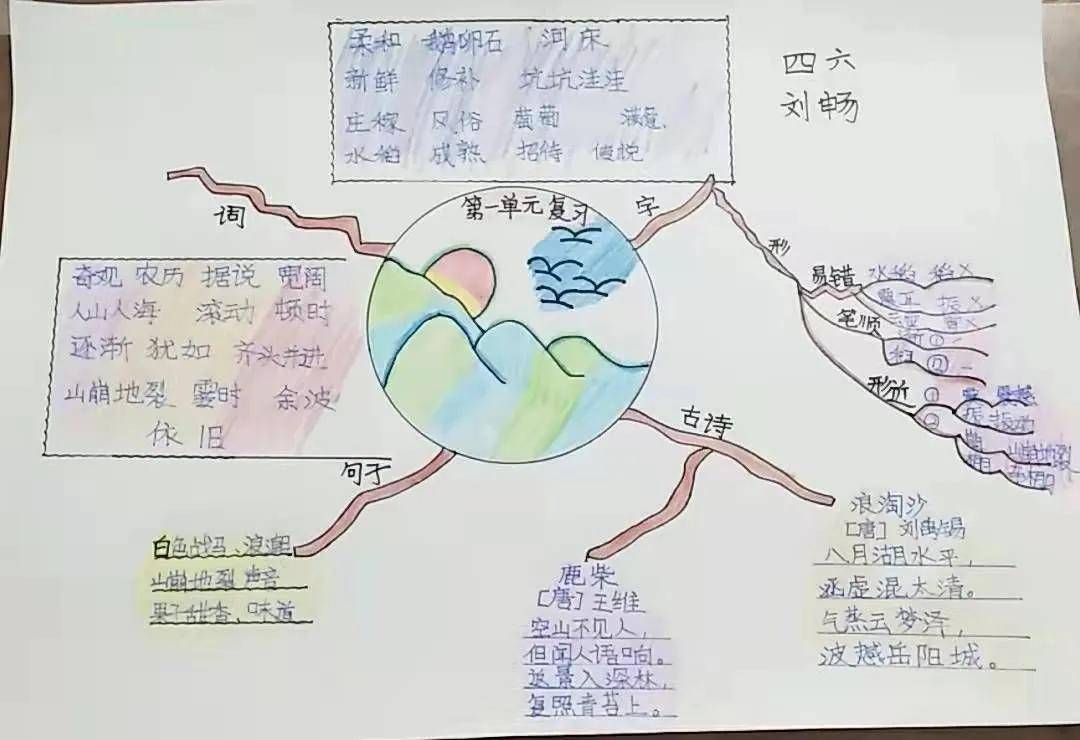 四六
刘畅
柔和 鹅卵石 河床
新鲜 修补 坑坑洼洼
庄稼 风俗 葡萄 满意
水稻 成熟 招待 传说
第一单元复习
词
字
形
易错 水稻
笔顺
形近
奇观 农历 据说 宽阔
人山人海 滚动 顿时
逐渐 犹如 齐头并进
山崩地裂 霎时 余波
依旧
句子
白色战马、浪潮
山崩地裂 声音
果子甜香、味道
古诗
鹿柴
[唐]王维
空山不见人,
但闻人语响。
返景入深林,
复照青苔上。
浪淘沙
[唐] 刘禹锡
八月湖水平,
涵虚混太清。
气蒸云梦泽,
波撼岳阳城。
山崩地裂